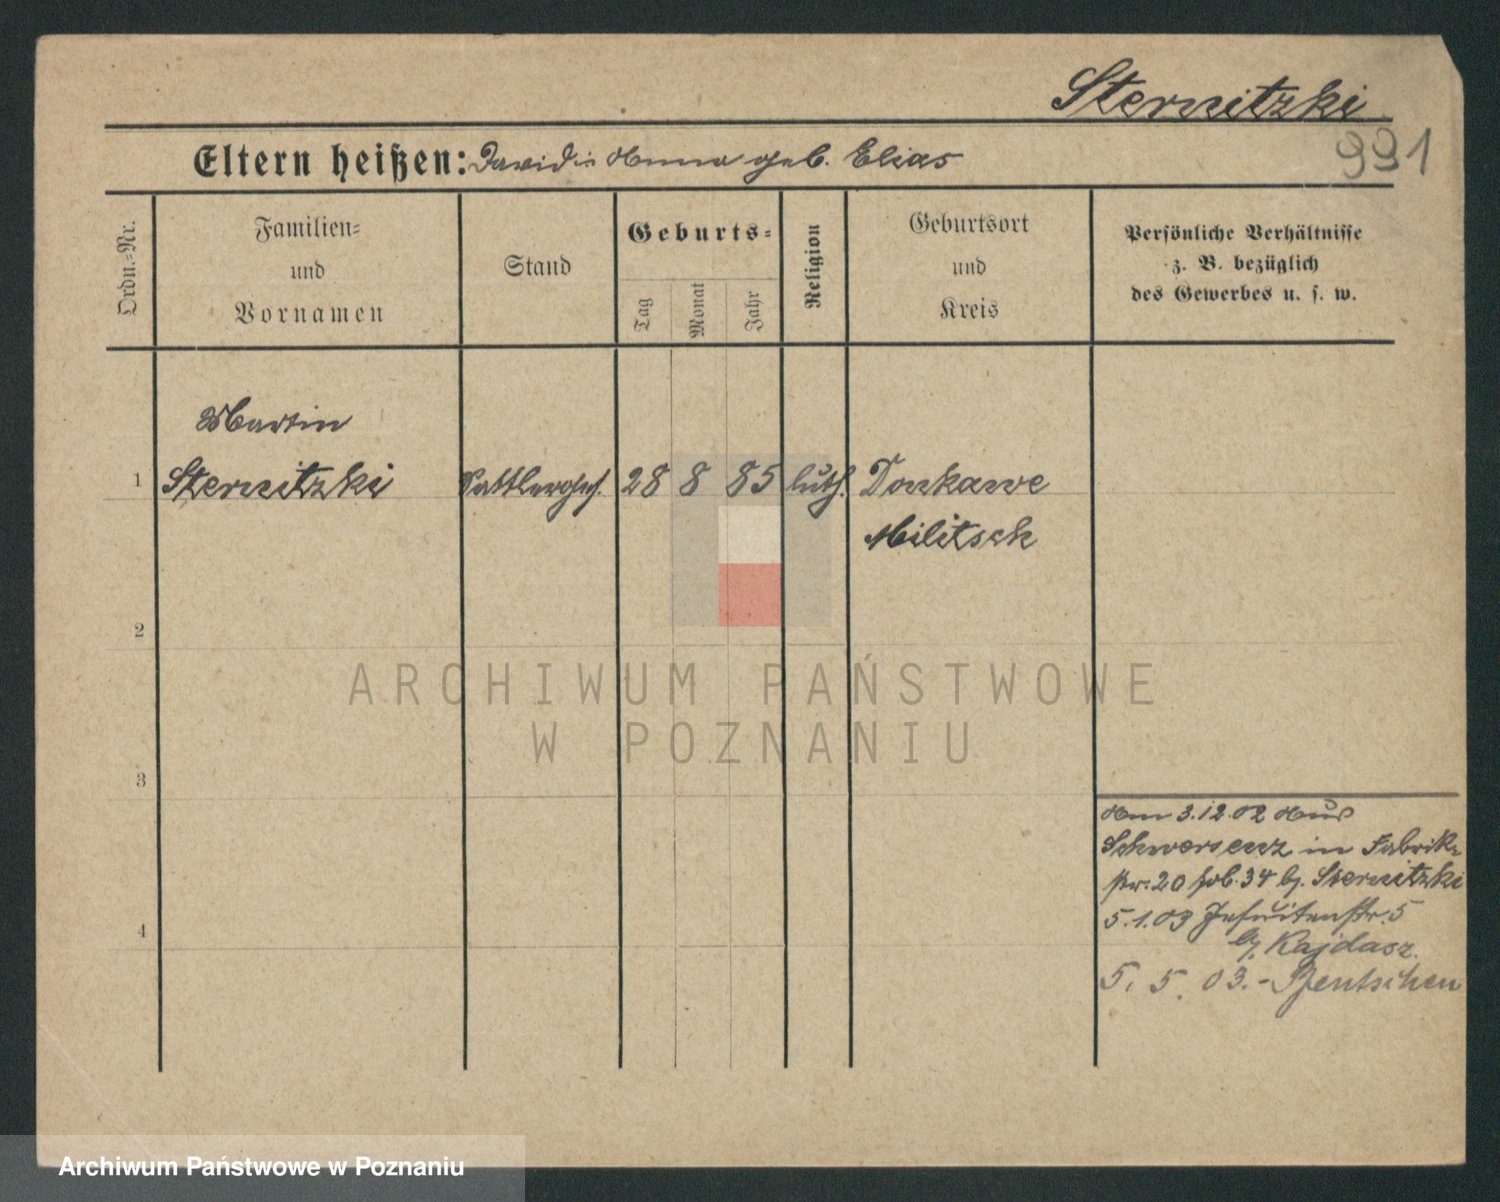 Sternitzki
991
Eltern heißen: David u Anna geb. Elias
Ordn.-Nr.
Familien-
und
Vornamen
Stand
Geburts-
Tag
Monat
Jahr
Religion
Geburtsort
und
Kreis
Persönliche Verhältnisse
z. B. bezüglich
des Gewerbes u. s. w.
Martin
1 Sternitzki Sattlerges. 28 8 85 luth. Donkawe
Militsch
2
3
4
Am 3.12.02 Aus
Schwersenz in Fabrik-
str. 20 34 b. Sternitzki
5.1.03 Jesuitenstr. 5
b. Kajdasz.
5. 5. 03. - Bentschen
ARCHIWUM PAŃSTWOWE
W POZNANIU
Archiwum Państwowe w Poznaniu